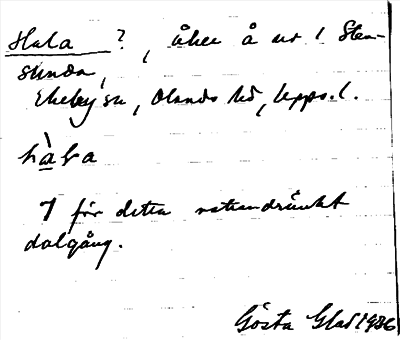 Hula ?, åker å nr 1 Sten-
sunda,
Ekeby sn, Olands hd, Upps. l.
hàla
7 för detta vattendränkt
dalgång.
Gösta Glad 1936